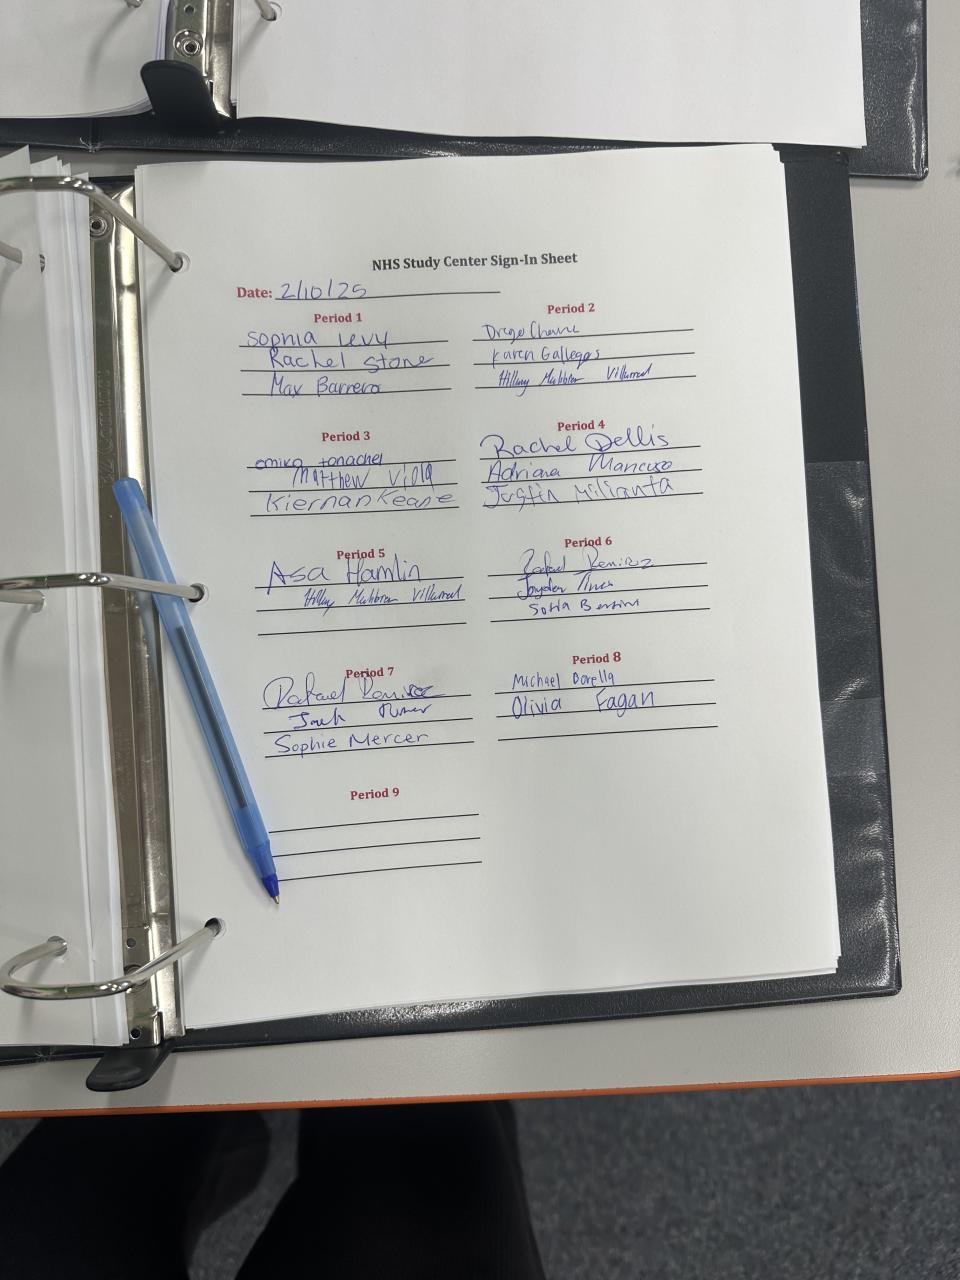 NHS Study Center Sign-In Sheet
Date: 2/10/25
Period 1
Sophia Levy
Rachel Stone
Max Barrera
Period 2
Karen Gallegos
Hillary Villarreal
Period 3
emika tonachel
Matthew Viola
Kiernan Keane
Period 4
Rachel Dellis
Adriana Mancuso
Justin Milianta
Period 5
Asa Hamlin
Hillary Villarreal
Period 6
Rafael Ramirez
Jayden
Sofia
Period 7
Rafael Ramirez
Sophie Mercer
Period 8
Michael Borella
Olivia Fagan
Period 9